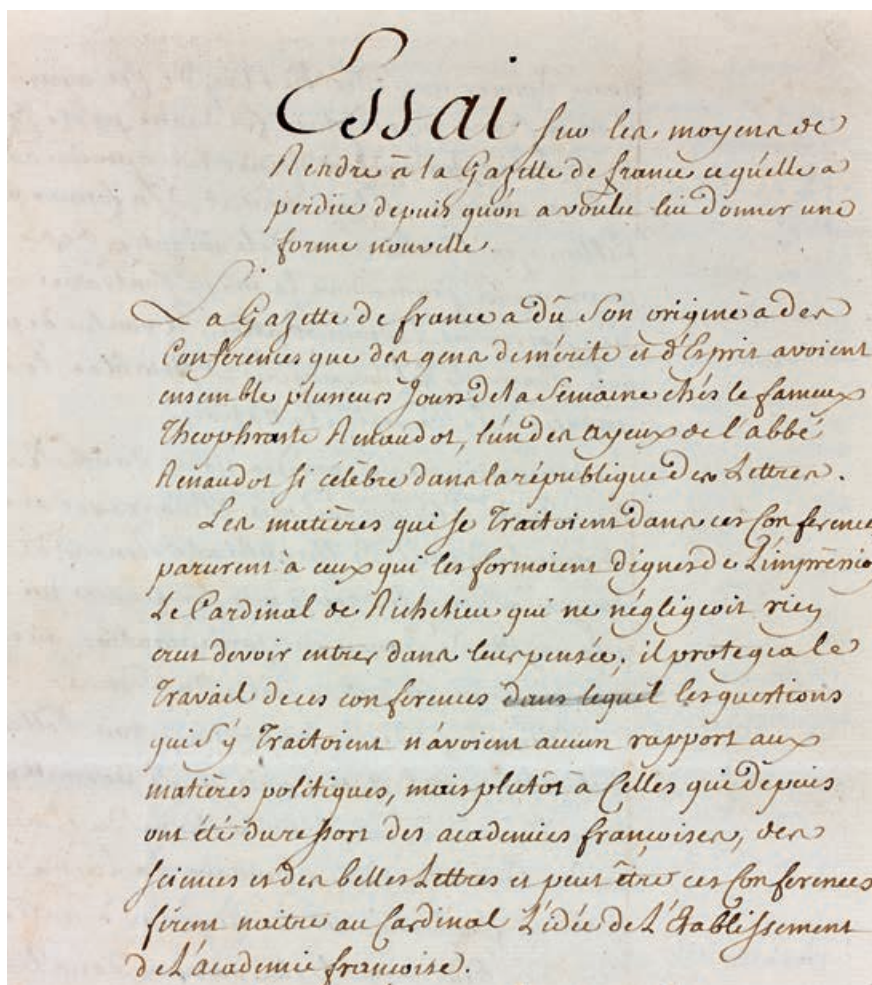 Essai sur les moyens de
Rendre à la Gazette de france ce qu'elle a
perdue depuis qu'on a voulu lui donner une
forme nouvelle.
La Gazette de france a dû Son origine a des
Conférences que des gens de mérite et d'Esprit avoient
ensemble plusieurs Jours de la Semaine chés le fameux
Théophraste Renaudot, l'un des ayeux de l'abbé
Renaudot si célèbre dans la république des Lettres.
Les matières qui se Traitoient dans ces Conference
parurent à ceux qui les formoient dignes de L'impressio
Le Cardinal de Richelieu qui ne négligeoit rien
crut devoir entrer dans leur pensée; il protegea le
Travail de ces conferences dans lequel les questions
qui S'y Traitoient n'avoient aucun rapport aux
matières politiques, mais plutôt à Celles qui depuis
ont été du ressort des academies françoises, des
sciences et des belles Lettres et peut être ces Conferences
firent naitre au Cardinal L'idée de L'Etablissement
de L'academie françoise.